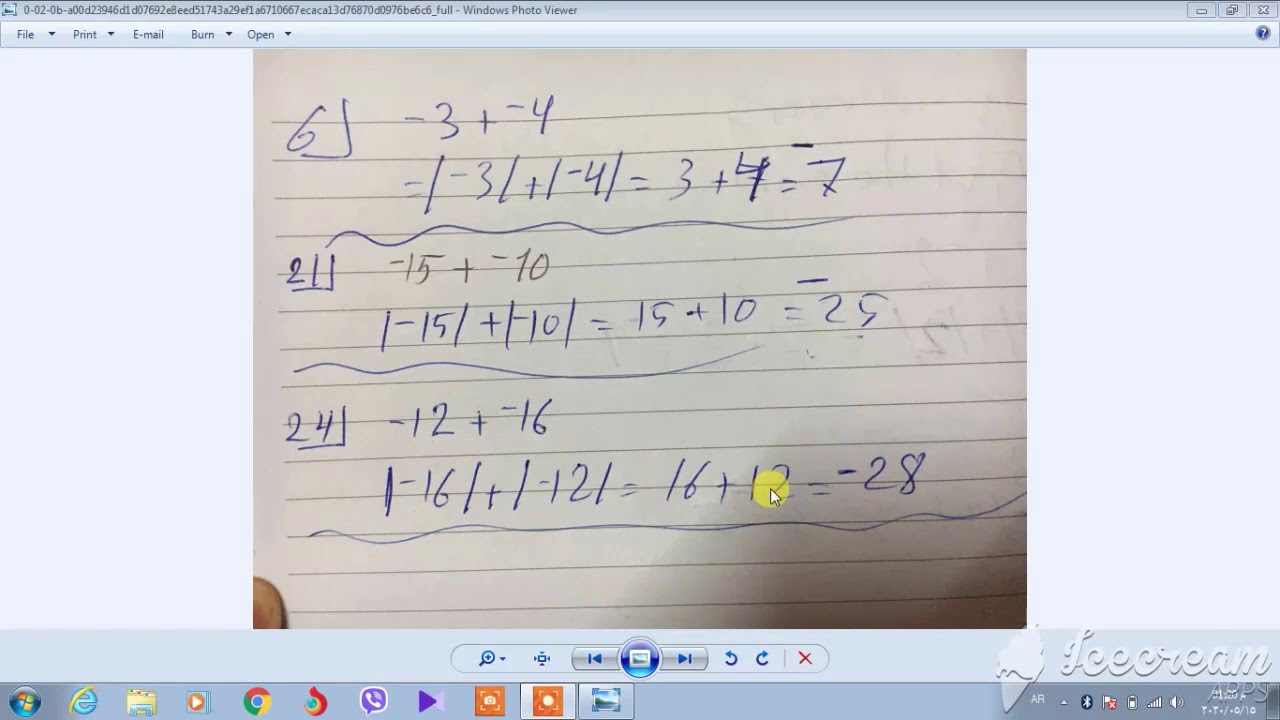 0-02-0b-a00d23946d1d07692e8eed51743a29ef1a6710667ecaca13d76870d0976be6c6_full - Windows Photo Viewer
File Print E-mail Burn Open
6] -3 + -4
= |-3| + |-4| = 3 + 4 = -7
21] -15 + -10
|-15| + |-10| = 15 + 10 = -25
24] -12 + -16
|-16| + |-12| = 16 + 12 = -28
Icecream
APPS
AR
٢٠٢٠/٠٥/١٥